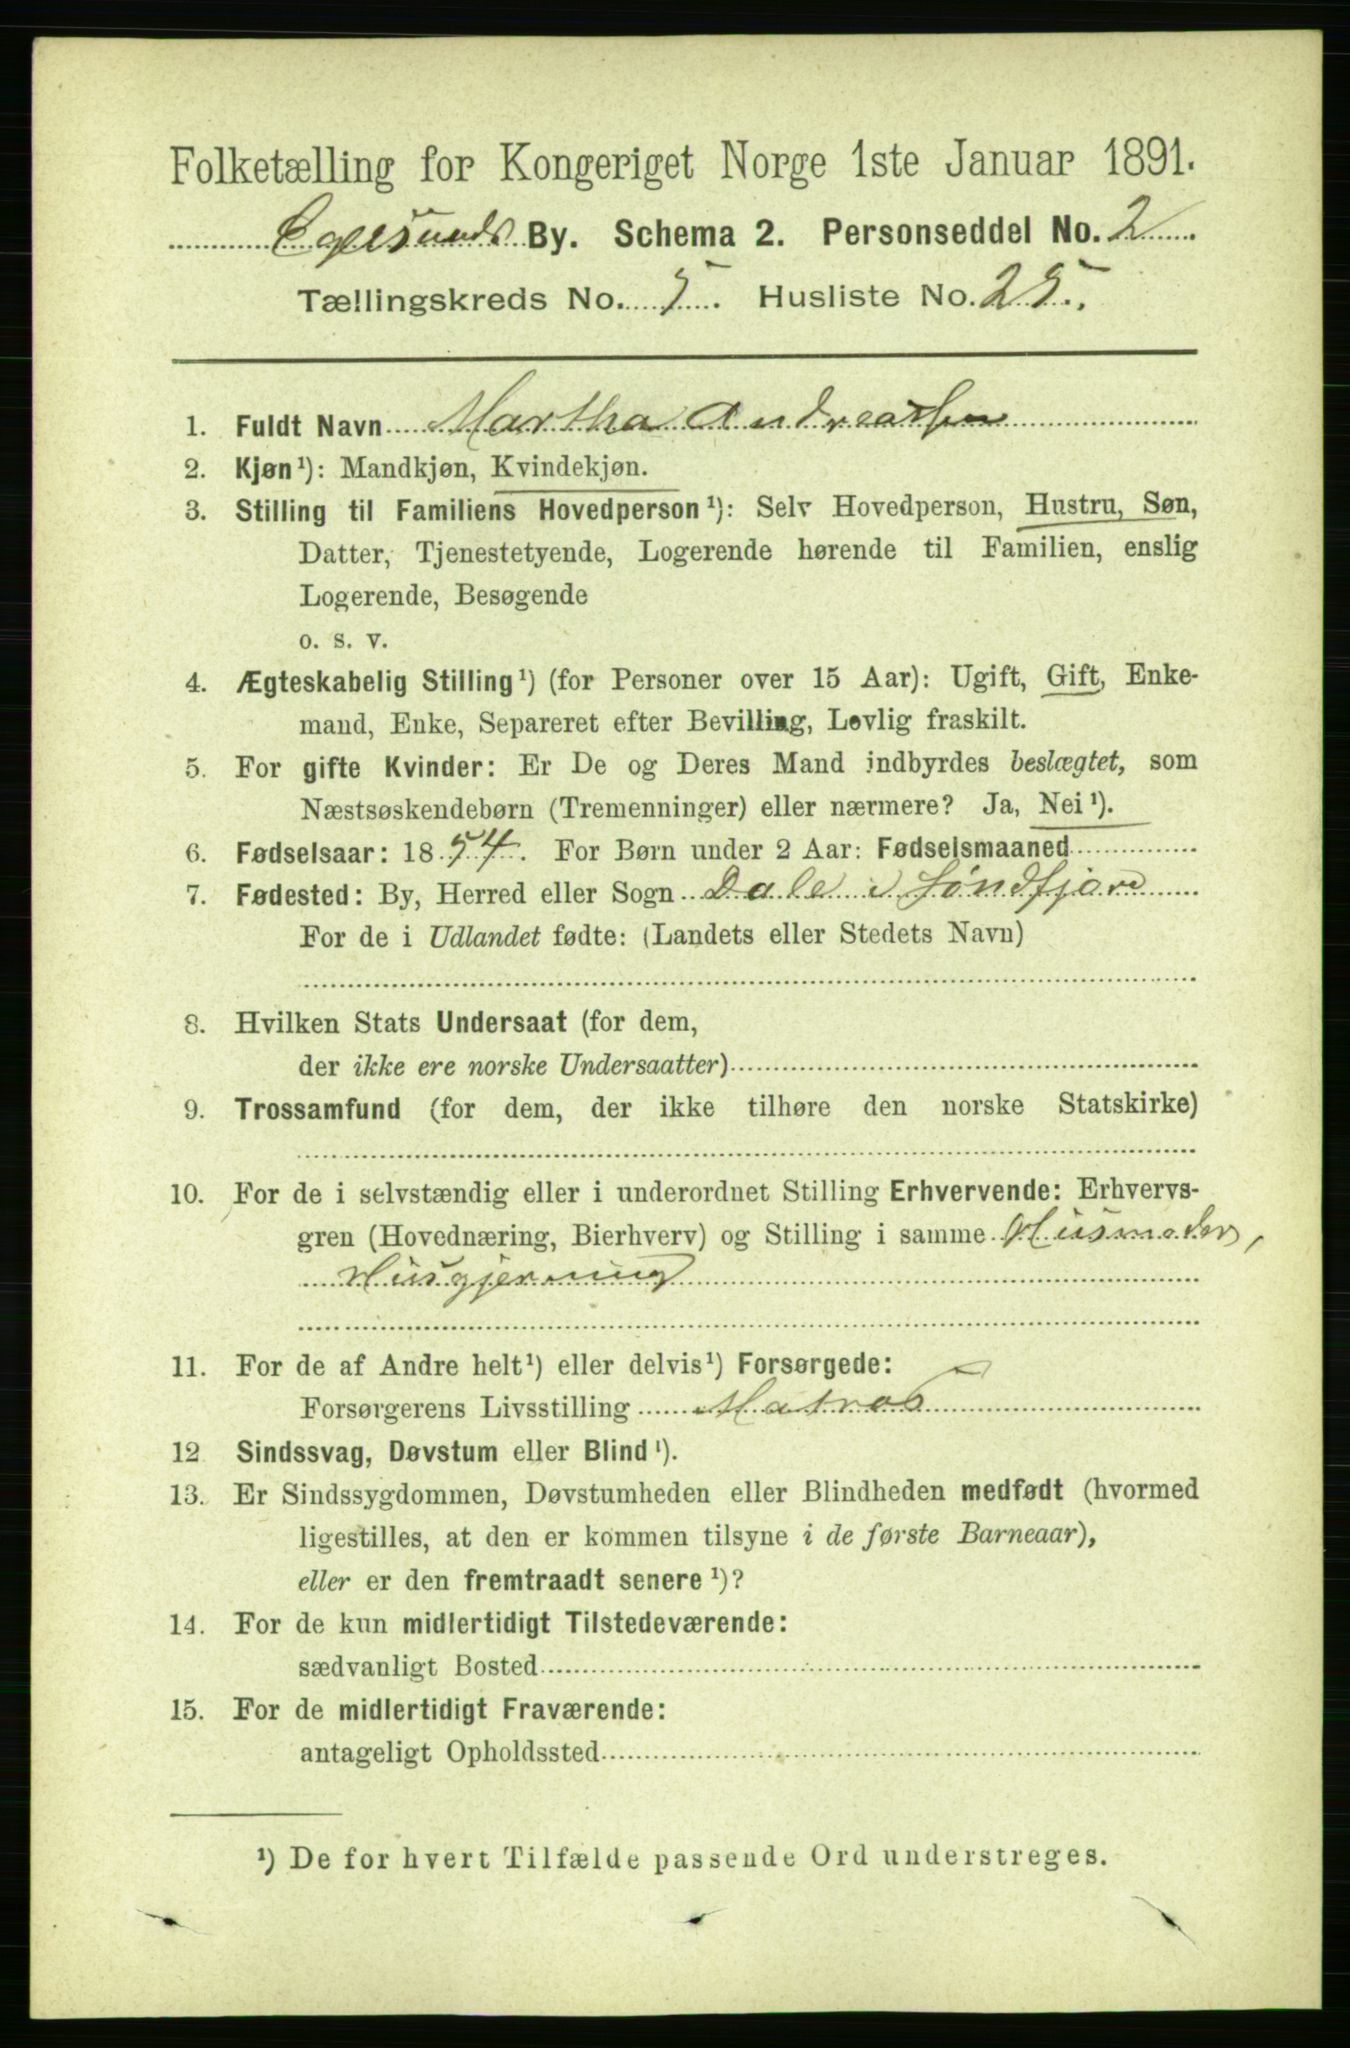 Folketælling for Kongeriget Norge 1ste Januar 1891.
Egersunds By. Schema 2. Personseddel No. 2
Tællingskreds No. 5. Husliste No. 25.
1. Fuldt Navn Martha Andreassen
2. Kjøn¹): Mandkjøn, Kvindekjøn.
3. Stilling til Familiens Hovedperson¹): Selv Hovedperson, Hustru, Søn,
Datter, Tjenestetyende, Logerende hørende til Familien, enslig
Logerende, Besøgende
o. s. v.
4. Ægteskabelig Stilling¹) (for Personer over 15 Aar): Ugift, Gift, Enke-
mand, Enke, Separeret efter Bevilling, Lovlig fraskilt.
5. For gifte Kvinder: Er De og Deres Mand indbyrdes beslægtet, som
Næstsøskendebørn (Tremenninger) eller nærmere? Ja, Nei¹).
6. Fødselsaar: 1854. For Børn under 2 Aar: Fødselsmaaned
7. Fødested: By, Herred eller Sogn Dale i Søndfjord
For de i Udlandet fødte: (Landets eller Stedets Navn)
8. Hvilken Stats Undersaat (for dem,
der ikke ere norske Undersaatter)
9. Trossamfund (for dem, der ikke tilhøre den norske Statskirke)
10. For de i selvstændig eller i underordnet Stilling Erhvervende: Erhvervs-
gren (Hovednæring, Bierhverv) og Stilling i samme Husmoder,
Husgjerning
11. For de af Andre helt¹) eller delvis¹) Forsørgede:
Forsørgerens Livsstilling Matros
12 Sindssvag, Døvstum eller Blind¹).
13. Er Sindssygdommen, Døvstumheden eller Blindheden medfødt (hvormed
ligestilles, at den er kommen tilsyne i de første Barneaar),
eller er den fremtraadt senere¹)?
14. For de kun midlertidigt Tilstedeværende:
sædvanligt Bosted
15. For de midlertidigt Fraværende:
antageligt Opholdssted
¹) De for hvert Tilfælde passende Ord understreges.